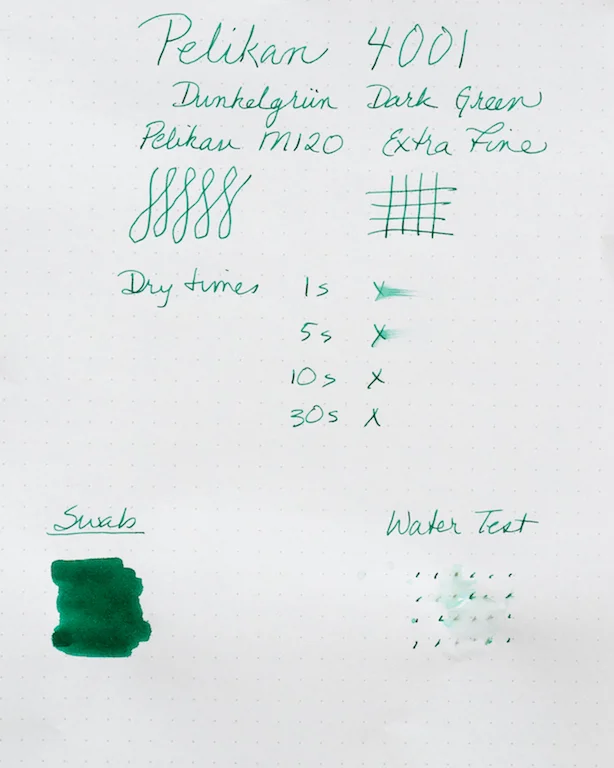 Pelikan 4001
Dunkelgrün Dark Green
Pelikan M120 Extra Fine
Dry times 1s x
5s x
10s x
30s x
Swab Water Test